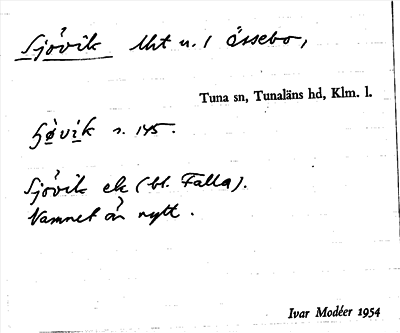 Sjövik lht u. / Össebo,
Tuna sn, Tunaläns hd, Klm. l.
s. 145.
Sjövik ek (bl. Falla).
Namnet är nytt.
Ivar Modéer 1954